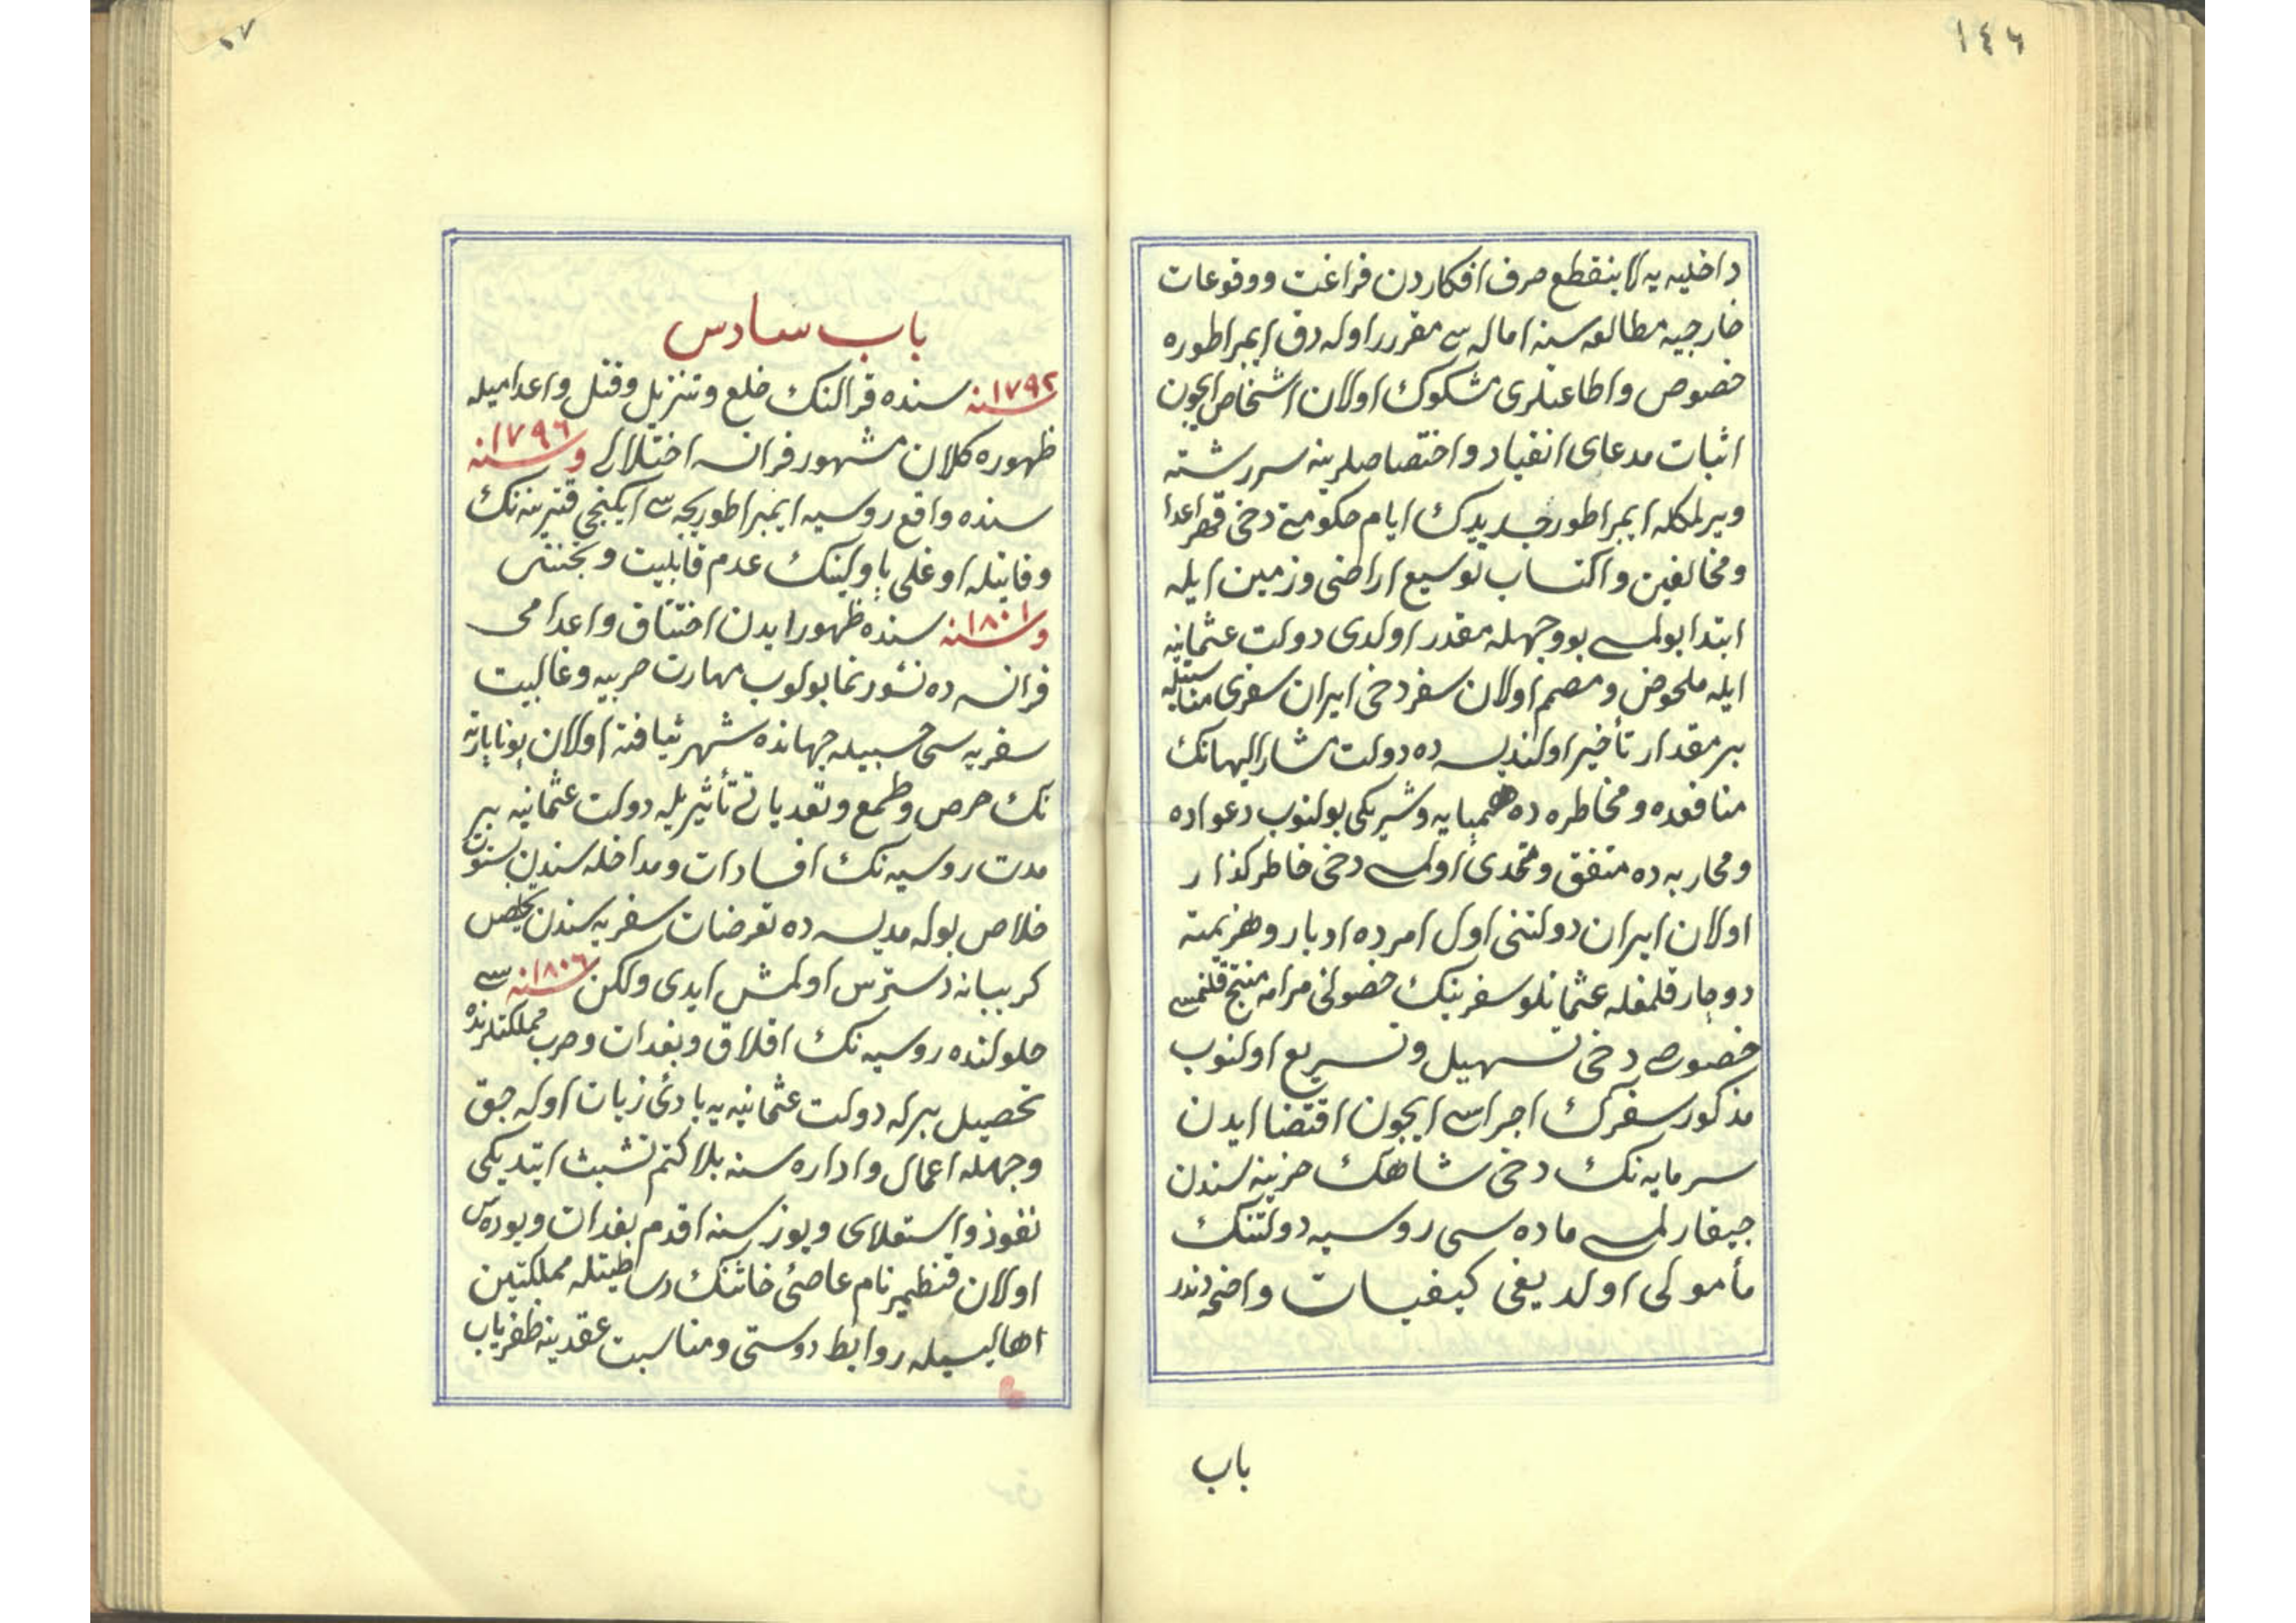 ١٤٦
داخلیه یه لا ینقطع صرف افکاردن فراغت و وقوعات
خارجیه مطالعه سنه اماله سی مقرر اوله رق ایمپراطوره
خصوص و اطاعتلری مشکوك اولان اشخاص ایچون
اثبات مدعای انقیاد و اختصاصلرینه سررشته
ویرلمکله ایمپراطور جدیدك ایام حکومتی دخی قهر اعدا
و مخالفین و اکتساب توسیع اراضی و زمین ایله
ابتدا بولمسی بو وجهله مقدر اولدی دولت عثمانیه
ایله ملحوض و مصمم اولان سفر دخی ایران سفری مناسبتیله
بر مقدار تأخیر اولندیسه ده دولت مشار الیهانك
منافعده و مخاطره ده همپایه و شریکی بولنوب دعواده
و محاربه ده متفق و متحدی اولمسی دخی خاطرکذار
اولان ایران دولتنی اول امرده ادبار و هزیمته
دوچار قلمغله عثمانلو سفرینك حصولی مرامه منتج قلنمسی
خصوصی دخی تسهیل و تسریع اولنوب
مذکور سفرك اجراسی ایچون اقتضا ایدن
سرمایه نك دخی شاهك خزینه سندن
چیقارلمسی ماده سی روسیه دولتنك
مأمولی اولدیغی کیفیات واضحه دندر
باب
٥٧
باب سادس
سنه ١٧٩٢ سنده قرالنك خلع و تنزیل و قتل و اعدامیله
ظهوره کلان مشهور فرانسه اختلالی و سنه ١٧٩٦
سنده واقع روسیه ایمپراطوریچه سی ایکنجی قترینه نك
وفاتیله اوغلی پاولینك عدم قابلیت و بختنی
و سنه ١٨٠١ سنده ظهور ایدن اختناق و اعدامی
فرانسه ده نشو و نما بولوب مهارت حربیه و غالبیت
سفریه سی حسبیله جهانده شهر تیافته اولان بوناپارته
نك حرص و طمع و تعدیاتی تأثیریله دولت عثمانیه بر
مدت روسیه نك افسادات و مداخله سندن بستون
خلاص بوله مدیسه ده تعرضات سفریه سندن تخلیص
کریبانه دسترس اولمش ایدی ولکن سنه ١٨٠٦ سی
حلولنده روسیه نك افلاق و بغدان و صرب مملکتلرنده
تحصیل برله دولت عثمانیه یه بادئ زیان اوله جق
وجهله اعمال و اداره سنه بلا کتم تشبث ایتدیکی
نفوذ و استعلای و یوز سنه اقدم بغدان ویوده سی
اولان قنطمیر نام عاصئ خائنك وساطتیله مملکتین
اهالیسیله روابط دوستی و مناسبت عقدینه ظفریاب